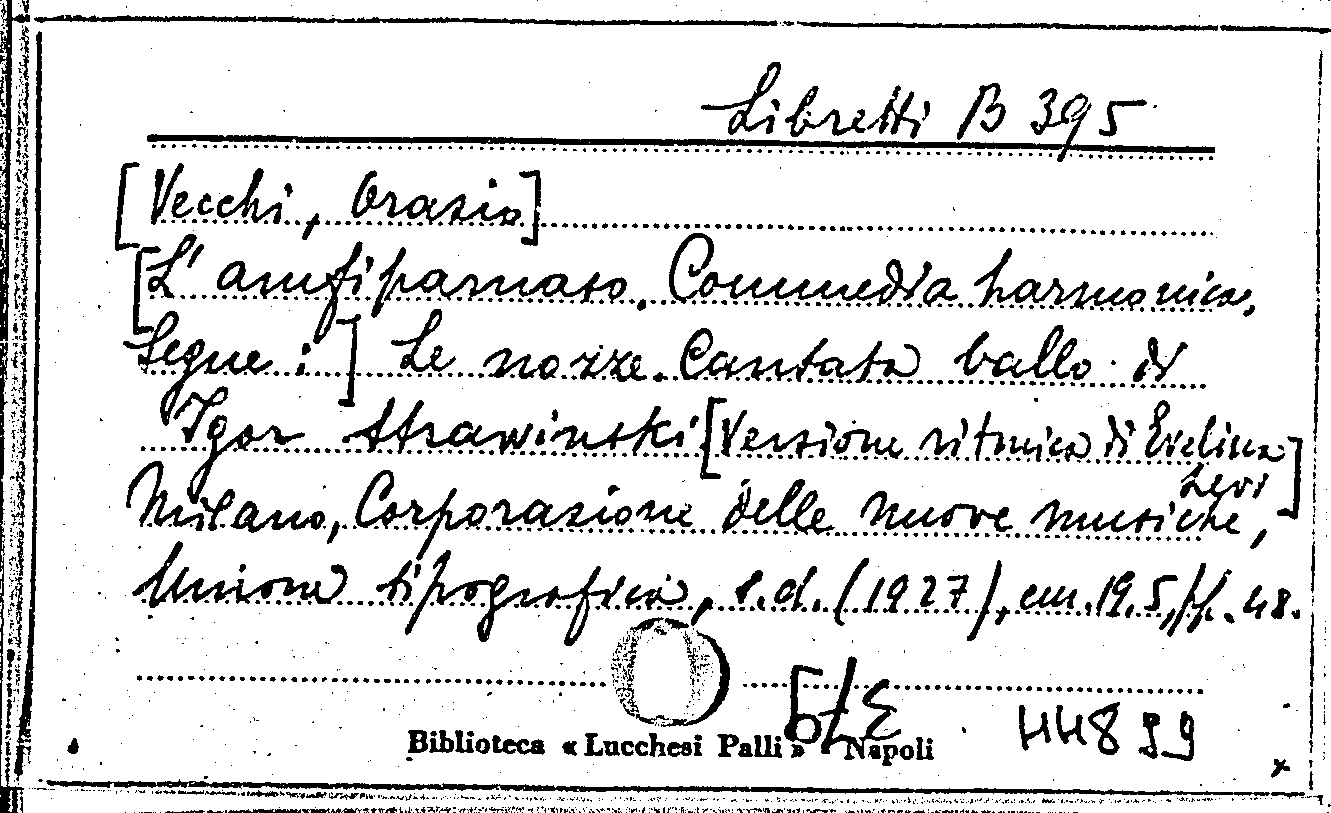 Libretti B 395
[Vecchi, Orazio]
[L'amfiparnaso. Commedia harmonica.
Segue:] Le nozze. Cantata ballo di
Igor Strawinski [Versione ritmica di Evelina
Levi]
Milano, Corporazione delle nuove musiche,
Unione tipografica, s.d. (1927), cm. 19.5, pp. 48.
44899
Biblioteca « Lucchesi Palli » Napoli